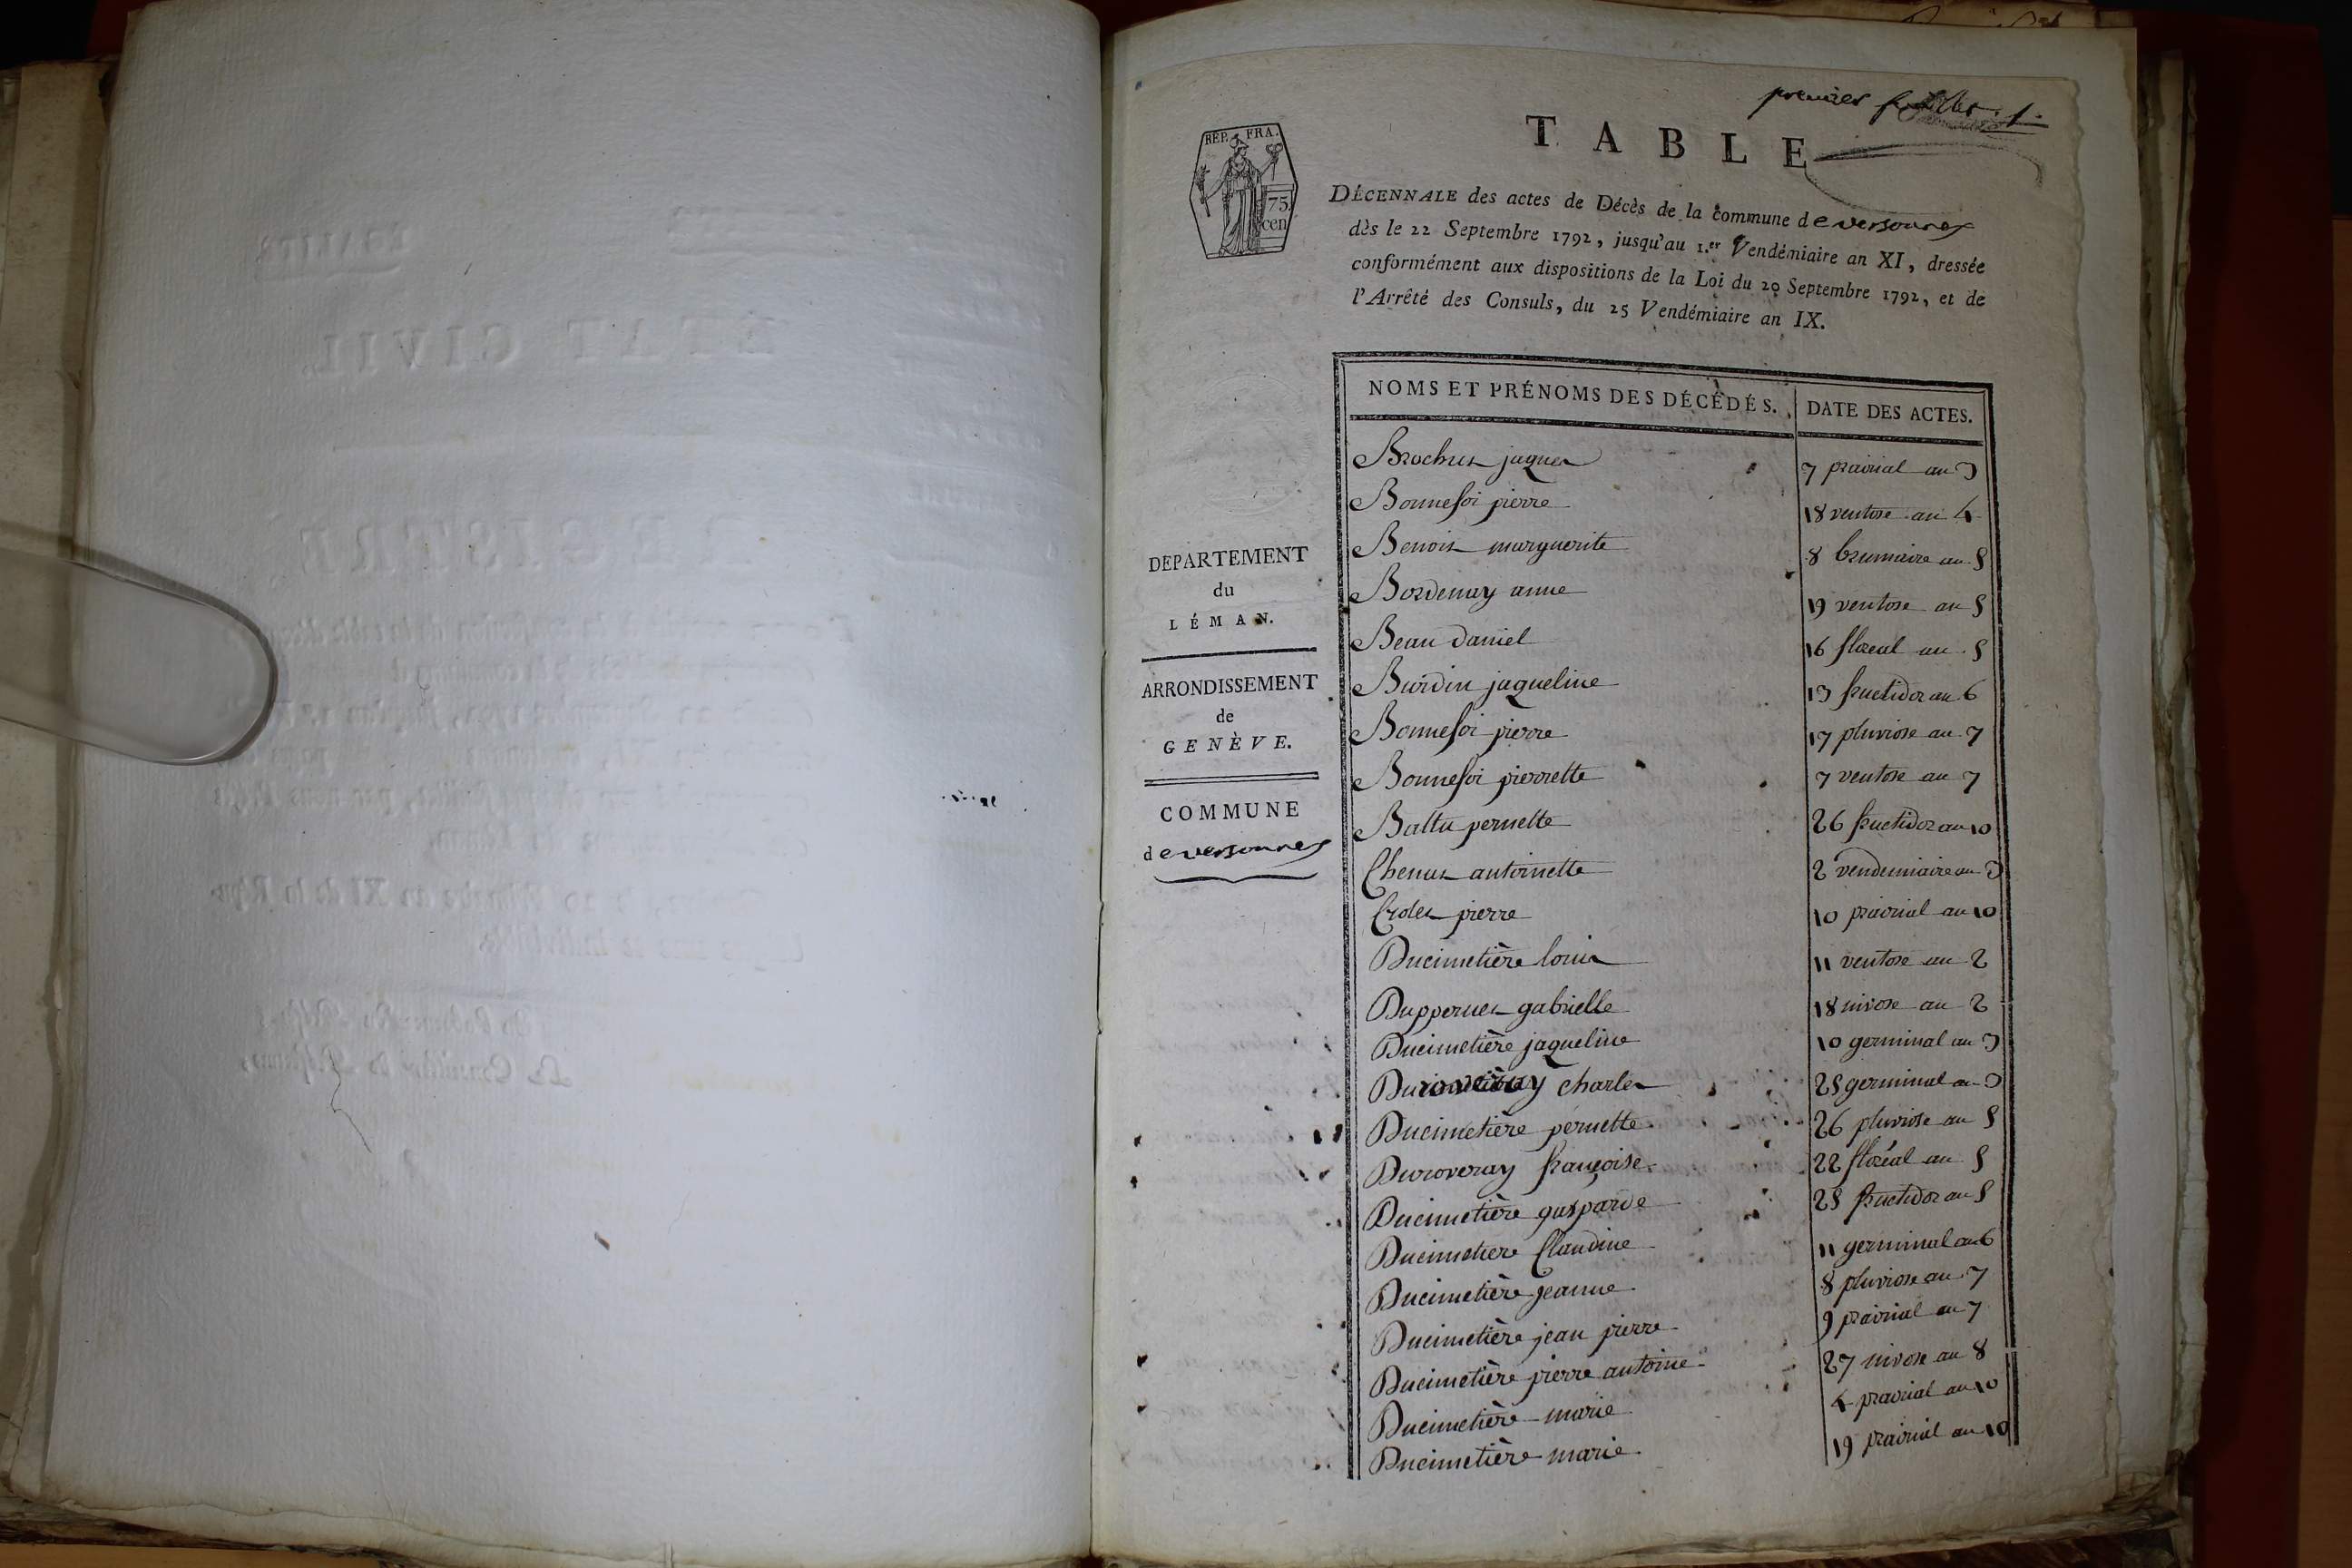 premier feuillet. 1.
REP. FRA.
75
cen
TABLE
DÉCENNALE des actes de Décès de la commune de versonnex
dès le 22 Septembre 1792, jusqu'au 1.er Vendémiaire an XI, dressée
conformément aux dispositions de la Loi du 20 Septembre 1792, et de
l'Arrêté des Consuls, du 25 Vendémiaire an IX.
DEPARTEMENT
du
LÉMAN.
ARRONDISSEMENT
de
GENÈVE.
COMMUNE
de versonnex
NOMS ET PRÉNOMS DES DÉCÉDÉS. DATE DES ACTES.
Brochus jaques 7 prairial an 3
Bonnefoi pierre 18 ventose an 4
Benois marguerite 8 brumaire an 5
Bordenay anne 19 ventose an 5
Beau daniel 16 floreal an 5
Burdin jaqueline 13 fructidor an 6
Bonnefoi pierre 17 pluviose an 7
Bonnefoi pierrette 7 ventose an 7
Baltu pernette 26 fructidor an 10
Chenus antoinette 2 vendemiaire an 3
Croles pierre 10 prairial an 10
Ducimetière louis 11 ventose an 2
Duppernes gabrielle 18 nivose an 2
Ducimetière jaqueline 10 germinal an 3
Duroveray charles 25 germinal an 3
Ducimetière pernette 26 pluviose an 5
Duroveray françoise 22 floréal an 5
Ducimetière gasparde 25 fructidor an 5
Ducimetiere Claudine 11 germinal an 6
Ducimetière jeanne 8 pluviose an 7
Ducimetière jean pierre 9 prairial an 7
Ducimetière pierre antoine 27 nivose an 8
Ducimetière marie 4 prairial an 10
Ducimetière marie 19 prairial an 10